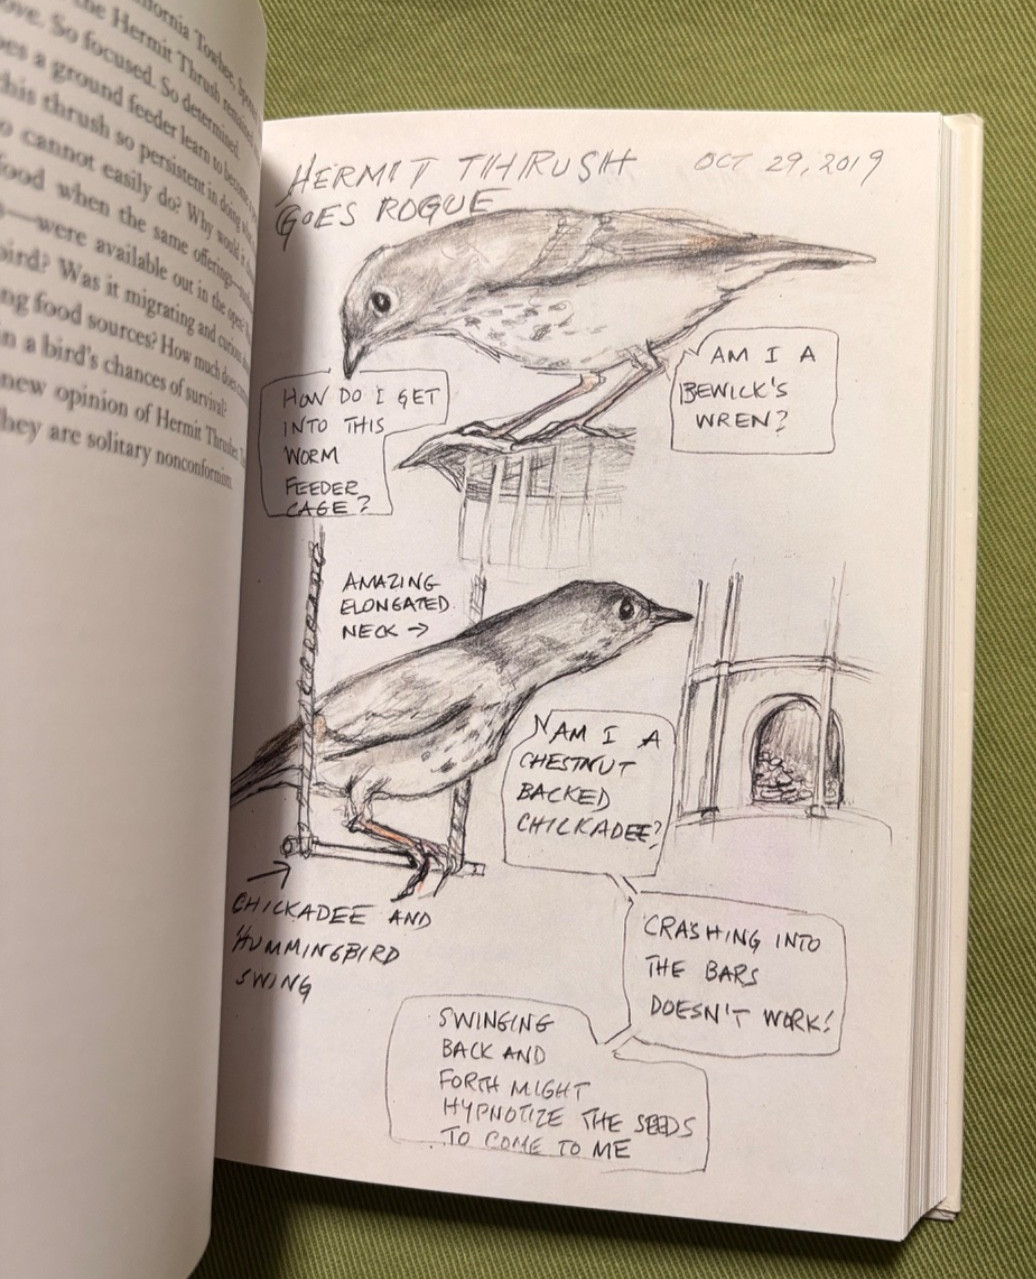 California Towhee,
the Hermit Thrush remained
So focused. So determined.
a ground feeder learn to become
this thrush so persistent in doing
cannot easily do? Why would it
food when the same offerings—
—were available out in the open?
bird? Was it migrating and curious
food sources? How much does
in a bird's chances of survival?
new opinion of Hermit Thrushes.
they are solitary nonconformists.
HERMIT THRUSH
GOES ROGUE
OCT 29, 2019
HOW DO I GET
INTO THIS
WORM
FEEDER
CAGE?
AM I A
BEWICK'S
WREN?
AMAZING
ELONGATED
NECK →
AM I A
CHESTNUT
BACKED
CHICKADEE?
CHICKADEE AND
HUMMINGBIRD
SWING
CRASHING INTO
THE BARS
DOESN'T WORK!
SWINGING
BACK AND
FORTH MIGHT
HYPNOTIZE THE SEEDS
TO COME TO ME